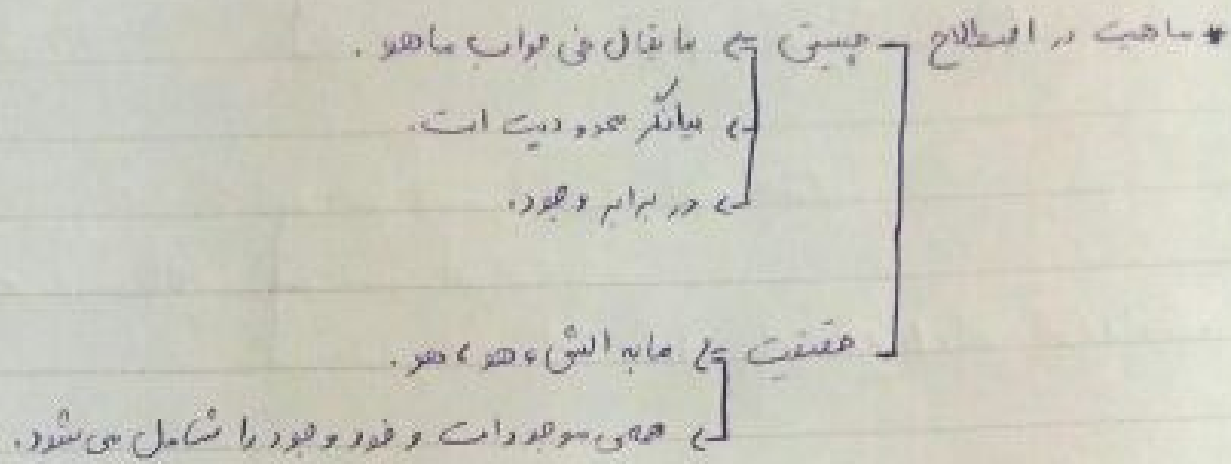 * ماهیت در اصطلاح چیستی ← ما یقال فی جواب ماهو.
← بیانگر محدودیت است.
← در برابر وجود.
حقیقت ← مابه الشیء هو هو.
← همه‌ی موجودات و خود وجود را شامل می‌شود.